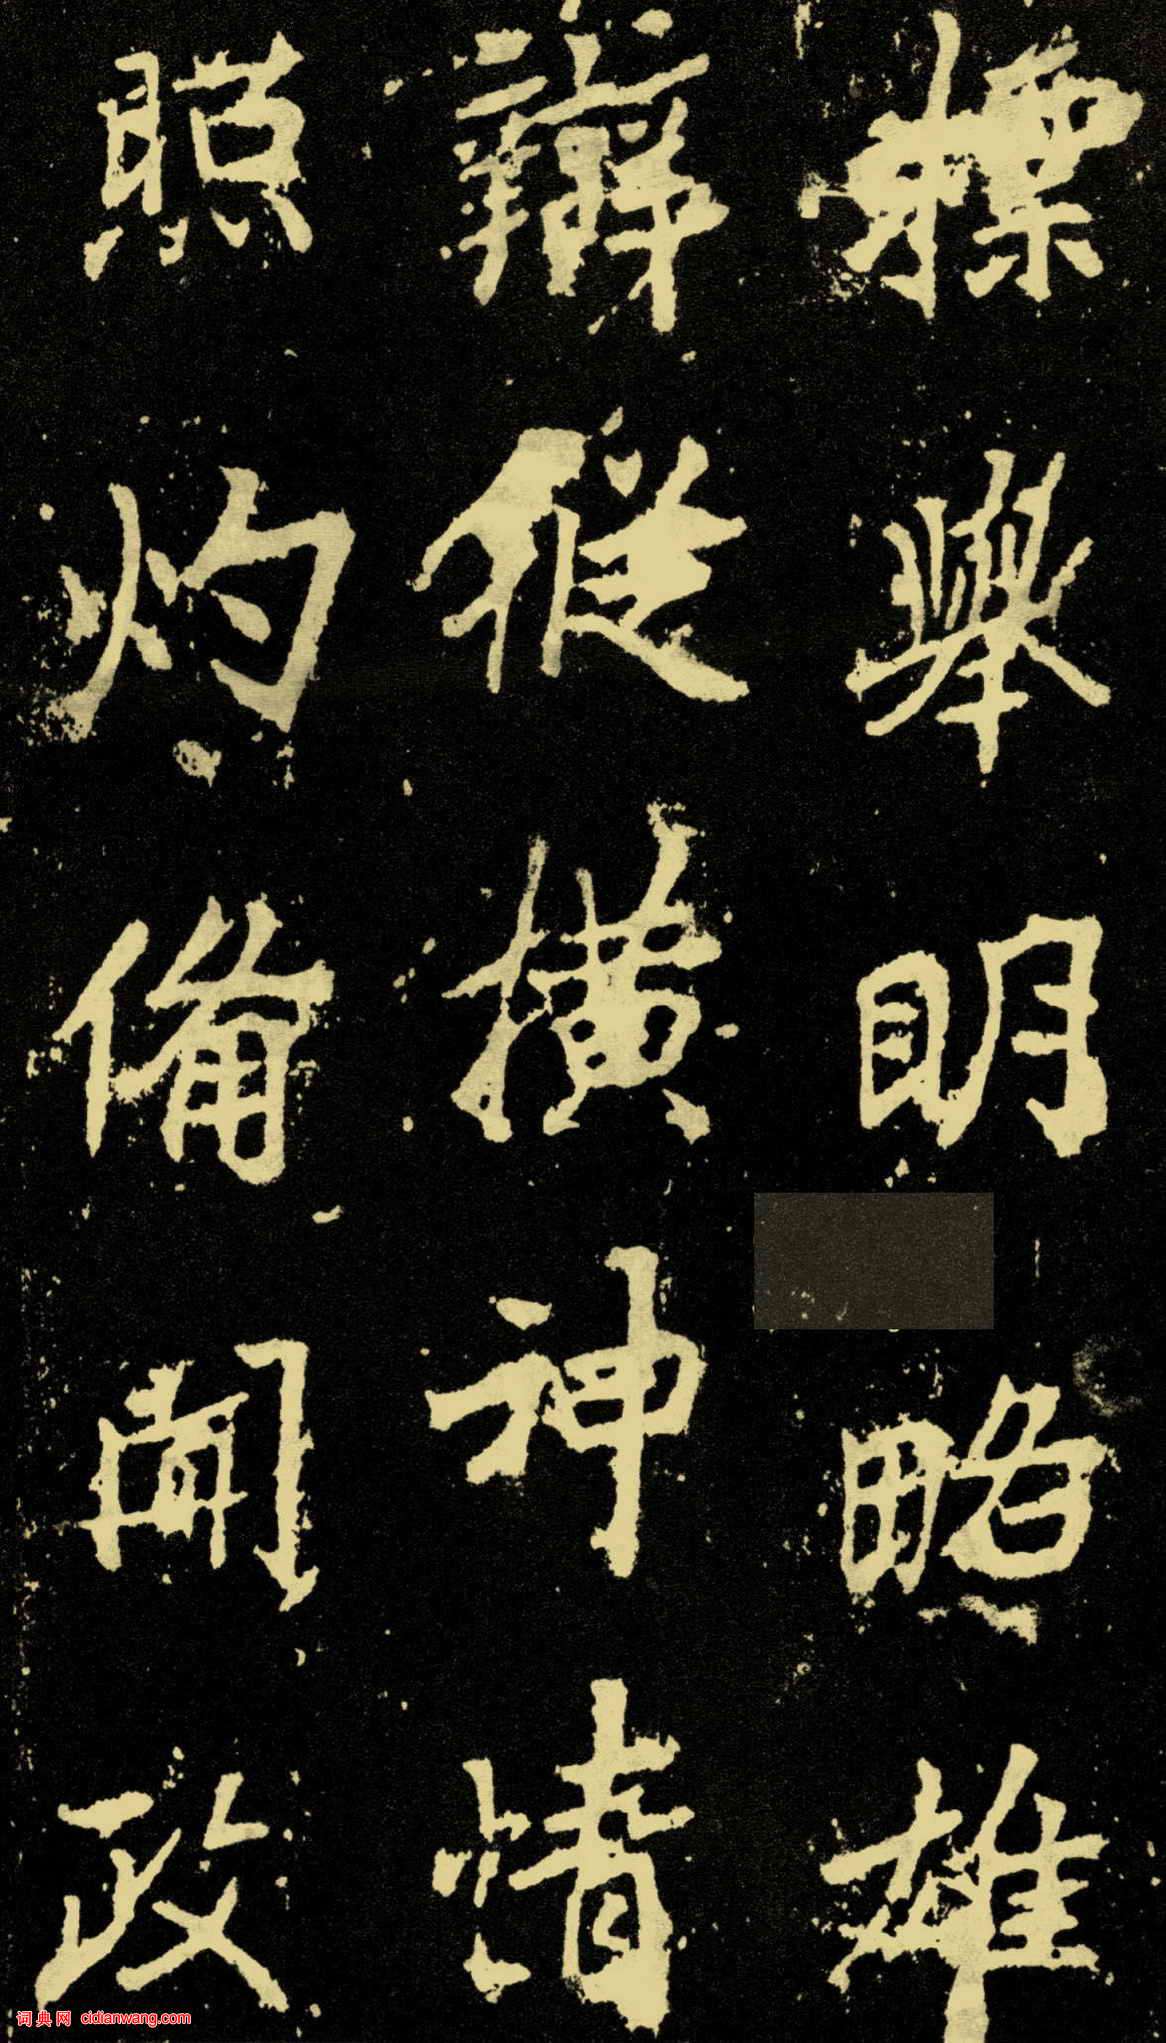 標舉明略雄
辯縱橫神情
照灼備聞政
词典网 cidianwang.com